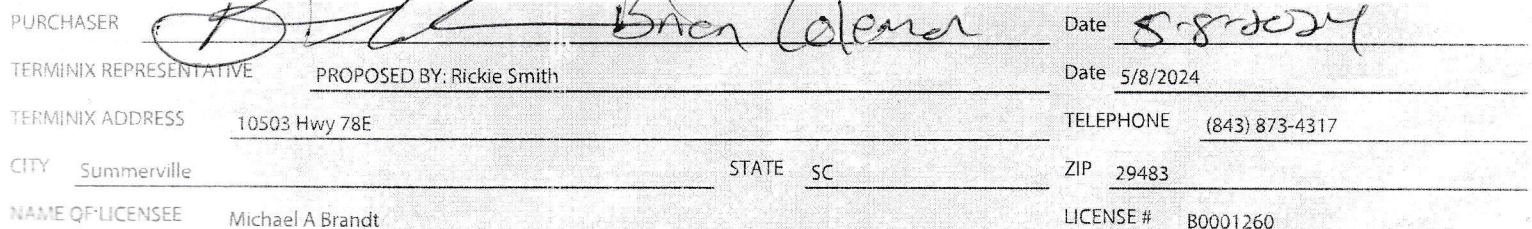 PURCHASER Brian Coleman Date 8-8-2024
TERMINIX REPRESENTATIVE PROPOSED BY: Rickie Smith Date 5/8/2024
TERMINIX ADDRESS 10503 Hwy 78E TELEPHONE (843) 873-4317
CITY Summerville STATE SC ZIP 29483
NAME OF LICENSEE Michael A Brandt LICENSE # B0001260